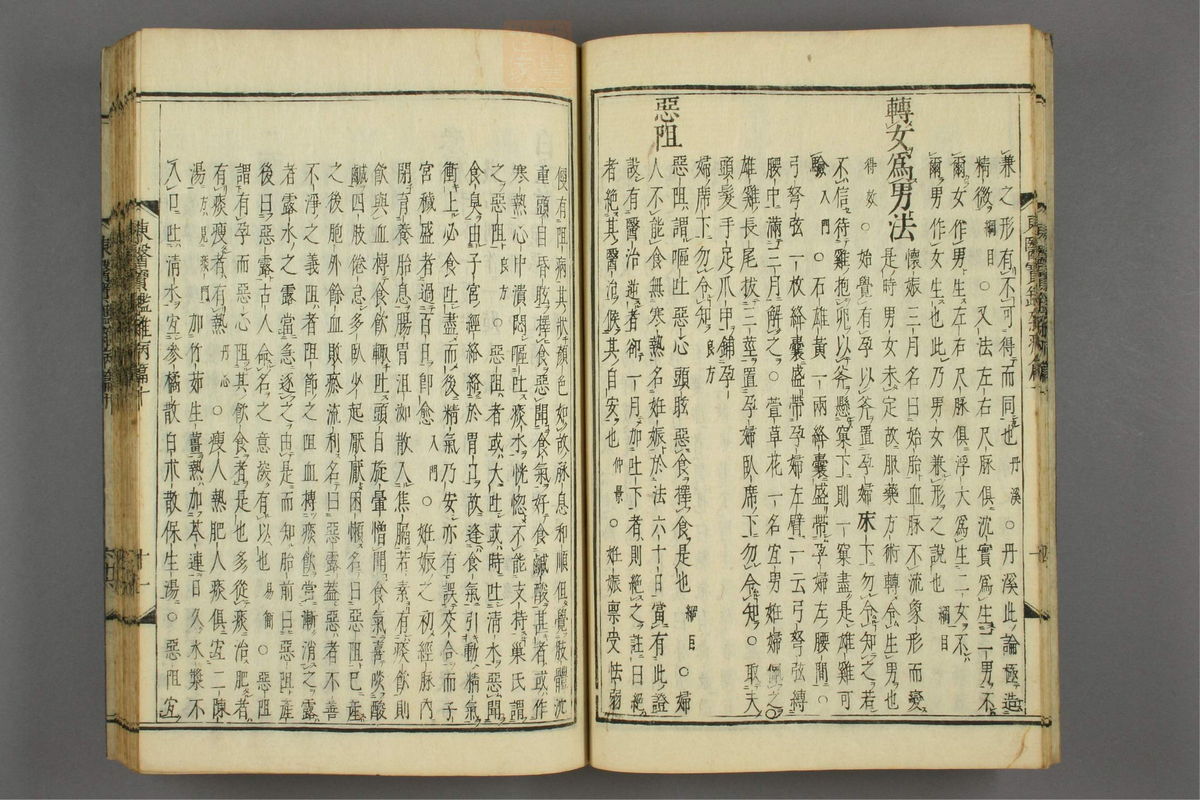 兼之形有不可得而同也丹溪○丹溪此論極造
精微綱目○又法左右尺脉俱沈實爲生二男不
爾女作男生左右尺脉俱浮大爲生二女不
爾男作女生也此乃男女兼形之說也綱目
轉女爲男法
懷娠三月名曰始胎血脉不流象形而變
是時男女未定故服藥方術轉令生男也
得效○始覺有孕以斧置孕婦床下勿令知之若
不信待雞抱卵以斧懸窠下則一窠盡是雄雞可
驗入門○石雄黃一兩絳囊盛帶孕婦左腰間○
弓弩弦一枚絳囊盛帶孕婦左臂一云弓弩弦縛
腰中滿三月解之○萱草花一名宜男姙婦佩之○
雄雞長尾拔三莖置孕婦臥席下勿令知○取夫
頭髮手足爪甲鋪孕
婦席下勿令知良方
惡阻
惡阻謂嘔吐惡心頭眩惡食擇食是也綱目○婦
人不能食無寒熱名姙娠於法六十日當有此證
設有醫治逆者卻一月加吐下者則絶之註曰絶
者絶其醫治候其自安也仲景○姙娠禀受怯弱
便有阻病其狀顔色如故脉息和順但覺肢體沈
重頭目昏眩擇食惡聞食氣好食鹹酸甚者或作
寒熱心中憒悶嘔吐痰水恍惚不能支持巢氏謂
之惡阻良方○惡阻者或大吐或時吐清水惡聞
食臭由子宮經絡絡於胃口故逢食氣引動精氣
衝上必食吐盡而後精氣乃安亦有誤交合而子
宮穢盛者過百日卽愈入門○姙娠之初經脉內
閉育養胎息腸胃沮洳散入焦膈若素有痰飮則
飮與血槫食飮輒吐頭目旋暈憎聞食氣喜啖酸
鹹四肢倦怠多臥少起厭厭困懶名曰惡阻已產
之後胞外餘血敗瘀流利名曰惡露蓋惡者不善
不淨之義阻者阻節之阻血槫痰飮當漸消之露
者露水之露當急逐之由是而知胎前曰惡阻產
後曰惡露古人命名之意該有以也易簡○惡阻
謂有孕而惡心阻其飮食者是也多從痰治肥者
有痰瘦者有熱丹心○瘦人熱肥人痰俱宜二陳
湯方見痰門加竹茹生薑熱加芩連日久水漿不
入口吐清水宜參橘散白朮散保生湯○惡阻宜
東醫寶鑑雜病篇十
十一